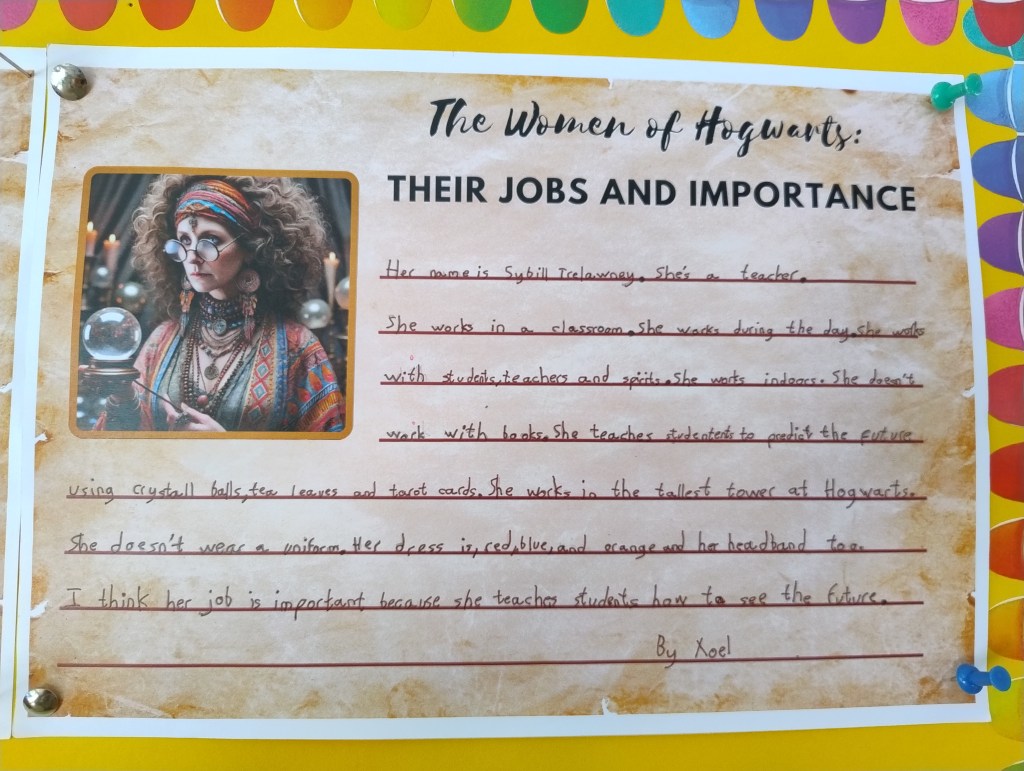 The Women of Hogwarts:
THEIR JOBS AND IMPORTANCE
Her name is Sybill Trelawney. She's a teacher.
She works in a classroom. She works during the day. She works
with students, teachers and spirits. She works indoors. She doesn't
work with books. She teaches studentents to predict the future
using crystall balls, tea leaves and tarot cards. She works in the tallest tower at Hogwarts.
She doesn't wear a uniform. Her dress is, red, blue, and orange and her headband too.
I think her job is important because she teaches students how to see the future.
By Xoel